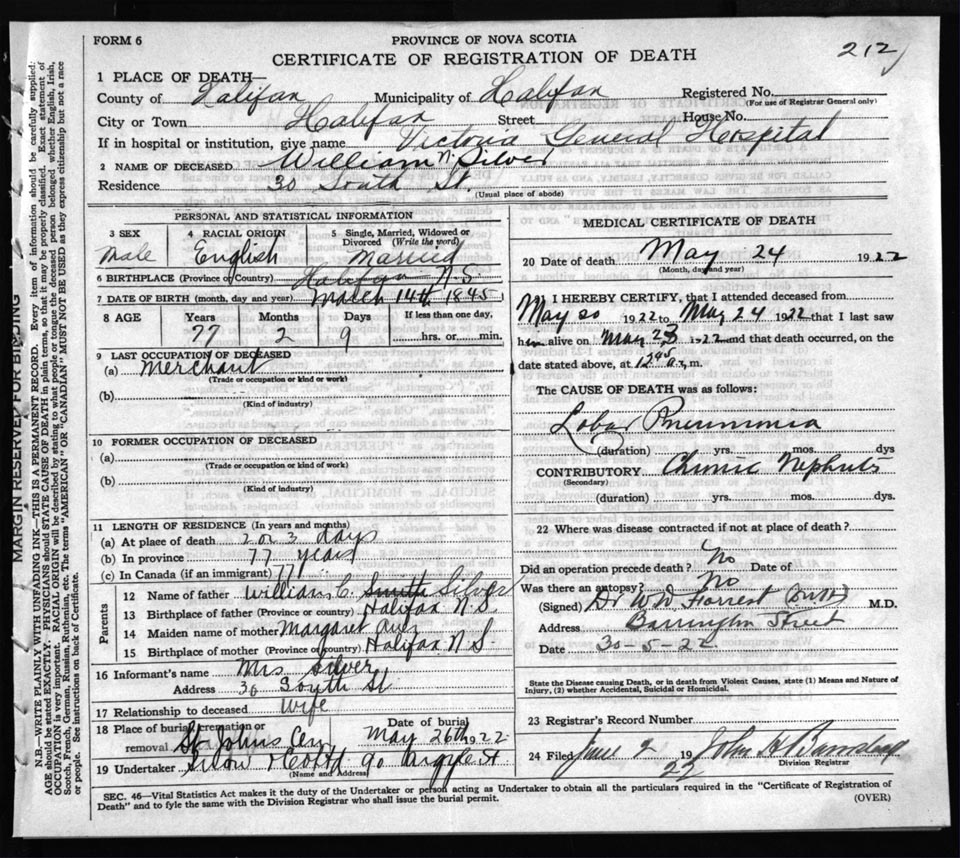 FORM 6
PROVINCE OF NOVA SCOTIA
CERTIFICATE OF REGISTRATION OF DEATH
212
1 PLACE OF DEATH—
County of Halifax Municipality of Halifax Registered No.
(For use of Registrar General only)
City or Town Halifax Street House No.
If in hospital or institution, give name Victoria General Hospital
2 NAME OF DECEASED William N. Silver
Residence 30 South St.
(Usual place of abode)
PERSONAL AND STATISTICAL INFORMATION
3 SEX 4 RACIAL ORIGIN 5 Single, Married, Widowed or Divorced (Write the word)
Male English Married
6 BIRTHPLACE (Province or Country) Halifax N.S
7 DATE OF BIRTH (month, day and year) March 14th 1845
8 AGE Years Months Days If less than one day,
77 2 9 hrs. or min.
9 LAST OCCUPATION OF DECEASED
(a) Merchant
(Trade or occupation or kind of work)
(b)
(Kind of industry)
10 FORMER OCCUPATION OF DECEASED
(a)
(Trade or occupation or kind of work)
(b)
(Kind of industry)
11 LENGTH OF RESIDENCE (In years and months)
(a) At place of death 2 or 3 days
(b) In province 77 years
(c) In Canada (if an immigrant) 77
Parents
12 Name of father William C. Smith Silver
13 Birthplace of father (Province or country) Halifax N.S
14 Maiden name of mother Margaret
15 Birthplace of mother (Province or country) Halifax N S
16 Informant's name Mrs Silver
Address 30 South St
17 Relationship to deceased Wife
18 Place of burial, cremation or removal St Johns Cem Date of burial May 26th 1922
19 Undertaker Snow & Co Ltd 90 Argyle St
(Name and Address)
MEDICAL CERTIFICATE OF DEATH
20 Date of death May 24 1922
(Month, day and year)
I HEREBY CERTIFY, that I attended deceased from
May 20 1922 to May 24 1922 that I last saw
him alive on May 23 1922 and that death occurred, on the
date stated above, at 12.45 a.m.
The CAUSE OF DEATH was as follows:
Lobar Pneumonia
(duration) yrs. mos. dys
CONTRIBUTORY Chronic Nephritis
(Secondary)
(duration) yrs. mos. dys.
22 Where was disease contracted if not at place of death?
Did an operation precede death? No Date of
Was there an autopsy? No
(Signed) Dr W W Forrest M.D.
Address Barrington Street
Date 30-5-22
State the Disease causing Death, or in death from Violent Causes, state (1) Means and Nature of
Injury, (2) whether Accidental, Suicidal or Homicidal.
23 Registrar's Record Number
24 Filed June 2 1922 John H Barnstead
Division Registrar
SEC. 46—Vital Statistics Act makes it the duty of the Undertaker or person acting as Undertaker to obtain all the particulars required in the "Certificate of Registration of
Death" and to fyle the same with the Division Registrar who shall issue the burial permit.
(OVER)
MARGIN RESERVED FOR BINDING
N.B.—WRITE PLAINLY WITH UNFADING INK—THIS IS A PERMANENT RECORD. Every item of information should be carefully supplied:
AGE should be stated EXACTLY. PHYSICIANS should STATE CAUSE OF DEATH in plain terms, so that it may be properly classified. Exact statement of
OCCUPATION is very important. RACIAL ORIGIN will be described by stating to what people or tongue the deceased person belonged whether English, Irish,
Scotch, French, German, Russian, Ruthenian, etc. The terms "AMERICAN" OR "CANADIAN" MUST NOT BE USED as they express citizenship but not a race
or people. See instructions on back of Certificate.